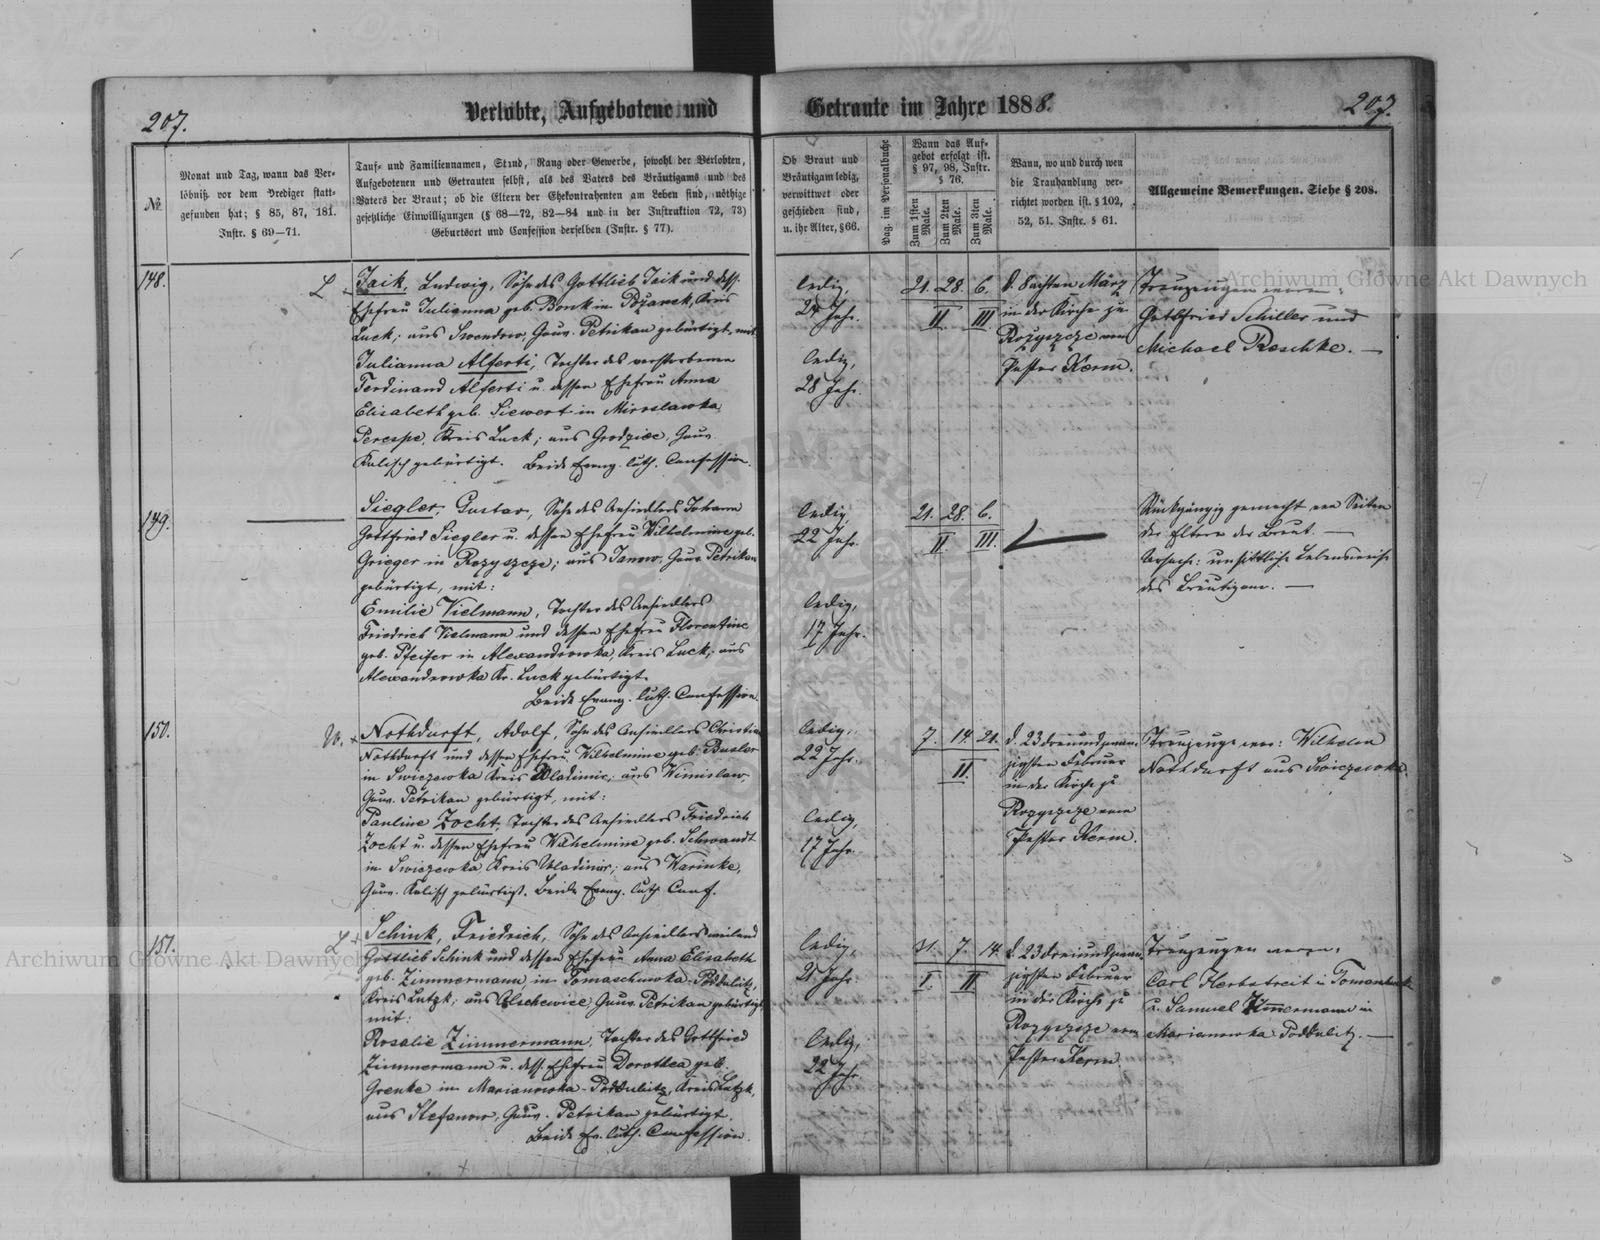 207.
Verlobte, Aufgebotene und
Getraute im Jahre 1888.
207.
№
Monat und Tag, wann das Ver-
löbniß vor dem Prediger statt-
gefunden hat; § 85, 87, 181.
Instr. § 69—71.
Tauf- und Familiennamen, Stand, Rang oder Gewerbe, sowohl der Verlobten,
Aufgebotenen und Getrauten selbst, als des Vaters des Bräutigams und des
Vaters der Braut; ob die Eltern der Ehekontrahenten am Leben sind, nöthige
gesetzliche Einwilligungen (§ 68—72, 82—84 und in der Instruktion 72, 73)
Geburtsort und Confession derselben (Instr. § 77).
Ob Braut und
Bräutigam ledig,
verwittwet oder
geschieden sind,
u. ihr Alter, § 66.
Pag. im Personalbuche
Wann das Auf-
gebot erfolgt ist.
§ 97, 98, Instr.
§ 76.
Zum 1sten Male.
Zum 2ten Male.
Zum 3ten Male.
Wann, wo und durch wen
die Trauhandlung ver-
richtet worden ist. § 102,
52, 51. Instr. § 61.
Allgemeine Bemerkungen. Siehe § 208.
148.
L
Jaik, Ludwig, Sohn des Gottlieb Jaik und dess.
Ehefrau Julianna geb. Bonk in Pożarek, Kreis
Luck; aus Swendow, Gouv. Petrikau gebürtigt, mit
Julianna Alferti, Tochter des verstorbenen
Ferdinand Alferti u. dessen Ehefrau Anna
Elisabeth geb. Siewert in Miroslawka
Perespe, Kreis Luck; aus Grodziec, Gouv.
Kalisch gebürtigt. Beide Evang. luth. Confession.
ledig,
24 Jahr.
ledig,
28 Jahr.
21. 28. 6.
II III
d. Sechsten März
in der Kirche zu
Rożyszcze vom
Pastor Kerm.
Trauzeugen waren:
Gottfried Schiller und
Michael Raschke. —
149.
Siegler, Gustav, Sohn des Ansiedlers Johann
Gottfried Siegler u. dessen Ehefrau Wilhelmine geb.
Grieger in Rozyszcze; aus Janow, Gouv. Petrikau
gebürtigt, mit:
Emilie Vielmann, Tochter des Ansiedlers
Friedrich Vielmann und dessen Ehefrau Florentine
geb. Pfeifer in Alexandrowka, Kreis Luck; aus
Alexandrowka Kr. Luck gebürtigt.
Beide Evang. luth. Confession.
ledig,
22 Jahr.
ledig,
17 Jahr.
21. 28. 6.
II III.
Rückgängig gemacht von Seiten
der Eltern der Braut. —
Ursache: unsittliche Lebensweise
des Bräutigam. —
150.
W. +
Nothdurft, Adolf, Sohn des Ansiedlers Christian
Nothdurft und dessen Ehefrau Wilhelmine geb. Busler
in Swiczewka Kreis Wladimir; aus Wimislaw
Gouv. Petrikau gebürtigt, mit:
Pauline Zocht, Tochter des Ansiedlers Friedrich
Zocht u. dessen Ehefrau Wilhelmine geb. Schwandt
in Swiczewka Kreis Wladimir; aus Warinke,
Gouv. Kalisch gebürtigt. Beide Evang. luth. Conf.
ledig,
22 Jahr.
ledig,
17 Jahr.
7. 14. 21.
II.
d. 23 dreiundzwan-
zigsten Februar
in der Kirche zu
Rozyszcze vom
Pastor Kerm.
Trauzeuge war: Wilhelm
Nothdurft aus Swiczewka.
151.
L +
Schink, Friedrich, Sohn des Ansiedlers weiland
Gottlieb Schink und dessen Ehefrau Anna Elisabeth
geb. Zimmermann, in Tomaschuwka-Poddulitz,
Kreis Lutzk; aus Olschewice Gouv. Petrikau gebürtigt,
mit:
Rosalie Zimmermann, Tochter des Gottfried
Zimmermann u. dess. Ehefrau Dorothea geb.
Grenke in Marianowka-Poddulitz, Kreis Lutzk,
aus Stefanow, Gouv. Petrikau gebürtigt.
Beide Ev. luth. Confession.
ledig,
21 Jahr.
ledig,
22 Jahr.
31. 7. 14.
I. II
d. 23 dreiundzwan-
zigsten Februar
in der Kirche zu
Rozyszcze vom
Pastor Kerm.
Trauzeugen waren:
Carl Herbstreit in
u. Samuel Zimmermann in
Marianowka Poddulitz. —
Archiwum Główne Akt Dawnych
Archiwum Główne Akt Dawnych